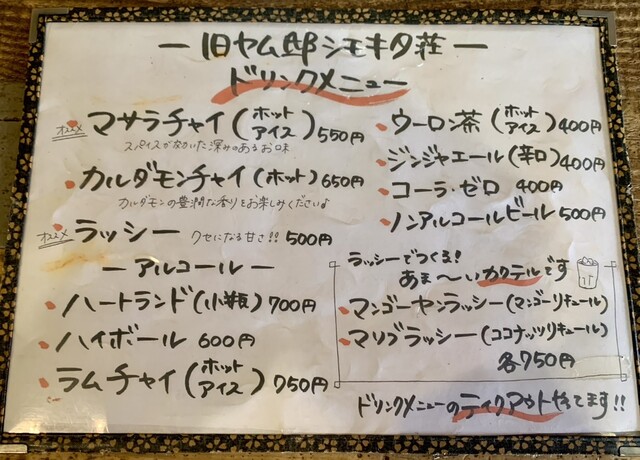 ー旧ヤム邸シモキタ荘ー
ドリンクメニュー
オススメ マサラチャイ(ホット アイス) 550円
スパイスがきいた深みのあるお味
カルダモンチャイ(ホット) 650円
カルダモンの豊潤な香りをお楽しみください♪
オススメ ラッシー クセになる甘さ!! 500円
ーアルコールー
ハートランド(小瓶) 700円
ハイボール 600円
ラムチャイ(ホット アイス) 750円
ウーロン茶(ホット アイス) 400円
ジンジャエール(辛口) 400円
コーラ・ゼロ 400円
ノンアルコールビール 500円
ラッシーでつくる!
あま〜いカクテルです
マンゴーヤンラッシー(マンゴーリキュール)
マリブラッシー(ココナッツリキュール)
各750円
ドリンクメニューのテイクアウトやってます!!